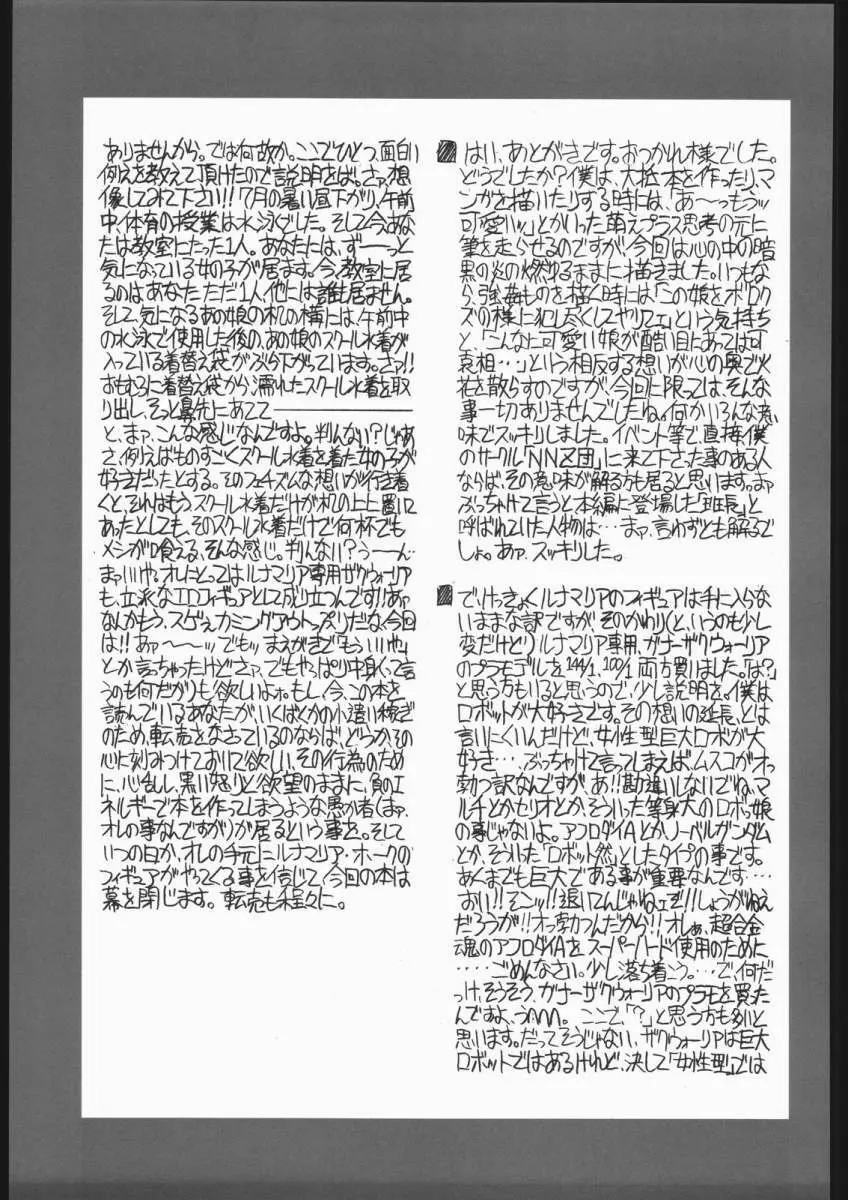 はい、あとがきです。おつかれ様でした。
どうでしたか？僕は、大抵本を作ったり、マ
ンガを描いたりする時には、「あ〜っもうッ
可愛いッ」とかいった萌えプラス思考の元に
筆を走らせるのですが、今回は心の中の暗
黒の炎の燃ゆるままに描きました。いつもな
ら、強姦ものを描く時には「この娘をボロク
ズの様に犯し尽くしてヤリてェ」という気持ち
と、「こんなに可愛い娘が酷い目にあっては可
哀相・・・」という相反する想いが心の奥で火
花を散らすのですが、今回に限っては、そんな
事一切ありませんでしたね。何かいろんな意
味でスッキリしました。イベント等で、直接僕
のサークル「NNZ団」に来て下さった事のある人
ならば、その意味が解る方も居ると思います。まァ
ぶっちゃけて言うと本編に登場した「班長」と
呼ばれていた人物は・・・まァ、言わずとも解るで
しょ。あァ、スッキリした。
で、けっきょくルナマリアのフィギュアは手に入らな
いままな訳ですが、そのかわり(と、いうのも少し
変だけど)ルナマリア専用、ガナーザクウォーリア
のプラモデルを144/1、100/1両方買いました。「は？」
と思う方もいると思うので、少し説明を。僕は
ロボットが大好きです。その想いの延長、とは
言いにくいんだけど、女性型巨大ロボが大
好き・・・ぶっちゃけて言ってしまえば、ムスコがオッ
勃つ訳なんですが、あ!!勘違いしないでね、マ
ルチとかセリオとか、そういった等身大のロボッ娘
の事じゃないよ。アフロダイAとかノーベルガンダム
とか、そういた「ロボット然」としたタイプの事です。
あくまでも巨大である事が重要なんです・・・・
おい!!そこッ!!退いてんじゃねェぞ!!しょうがねえ
だろうが!!オッ勃つんだから!!オレぁ、超合金
魂のアフロダイAを スーパーハード使用のために
・・・・・ごめんなさい。少し落ち着こう。・・・で、何だ
っけ、そうそう、ガナーザクウォーリアのプラモを買った
んですよ、うん。 ここで、「？」と思う方も多いと
思います。だってそうじゃない、ザクウォーリアは巨大
ロボットではあるけれど、決して「女性型」では
ありませんから。では何故か。ここでひとつ、面白い
例えを教えて頂けたので説明をば。さァ、想
像してみて下さい!!「7月の暑い昼下がり、午前
中、体育の授業は水泳でした。そして今、あな
たは教室にたった1人。あなたには、ず――っと
気になっている女の子が居ます。今、教室に居
るのはあなたただ1人、他には誰も居ません。
そして、気になるあの娘の机の横には、午前中
の水泳で使用した後の、あの娘のスクール水着が
入っている着替え袋がぶら下がっています。さァ!!
おもむろに着替え袋から、濡れたスクール水着を取
り出し、そっと鼻先にあてて――――――――
と、まァ、こんな感じなんですよ。判んない？じゃあ
さ、例えばものすごくスクール水着を着た女の子が
好きだったとする。そのフェチズムな想いが行き着
くと、それはもう、スクール水着だけが机の上に置いて
あったとしても、そのスクール水着だけで何杯でも
メシが喰える、そんな感じ。判んない？う〜ん・・
まァいいや。オレにとってはルナマリア専用ザクウォーリア
も、立派なエロフィギュアとして成り立つんです!!あァ
なんかもう、スゲェカミングアウトっぷりだな、今回
は!!あァ〜〜ッ でもッ まえがきで「もういいや」
とか言っちゃったけどさァ、でもやっぱり中身くって言
うのも何だかりも欲しいよォ。もし、今、この本を
読んでいるあなたが、いくばくかの小遣い稼ぎ
のため、転売をなさっているのならば、どうか、その
心に刻みつけておいて欲しい。その行為のため
に、心乱し、黒い怒りと欲望のままに、負のエ
ネルギーで本を作ってしまうような愚か者(まァ、
オレの事なんですが)が居るという事を。そして
いつの日か、オレの手元にルナマリア・ホークの
フィギュアがやってくる事を信じて、今回の本は
幕を閉じます。転売も程々に。